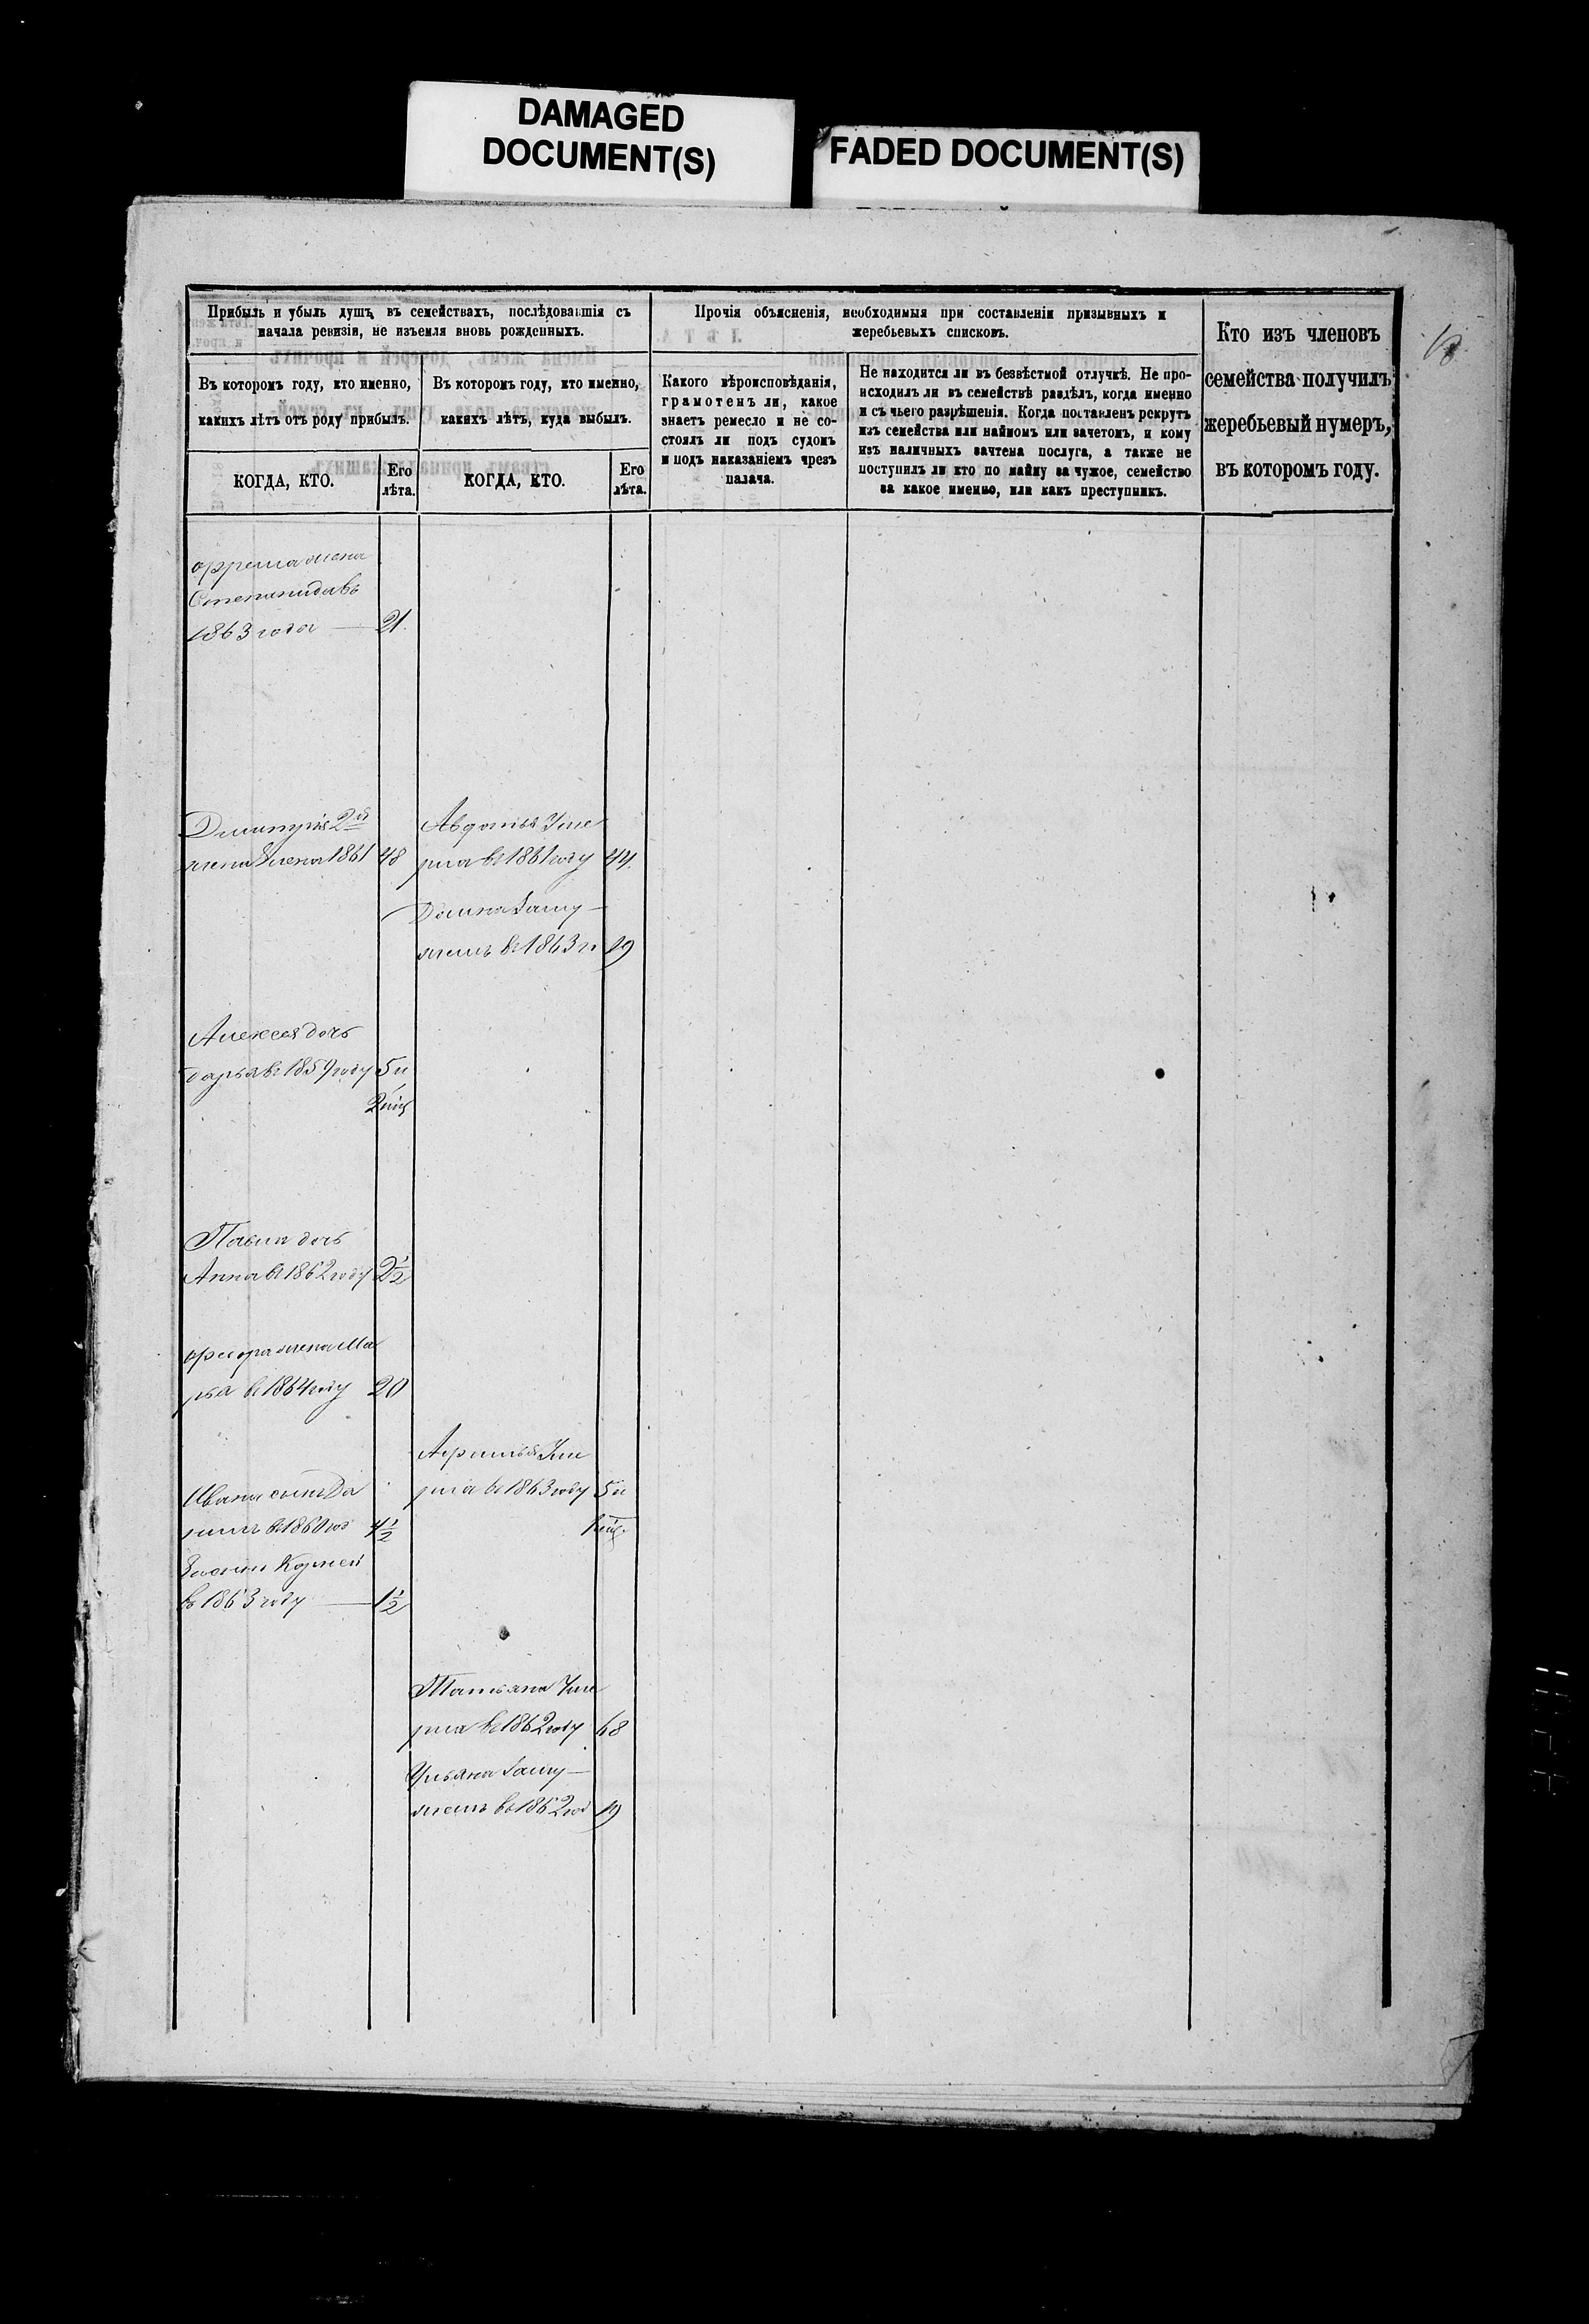 DAMAGED
DOCUMENT(S)
FADED DOCUMENT(S)
Прибыль и убыль душъ въ семействахъ, послѣдовавшія съ
начала ревизіи, не изъемля вновь рожденныхъ.
Въ которомъ году, кто именно,
какихъ лѣтъ отъ роду прибылъ.
Въ которомъ году, кто именно,
какихъ лѣтъ, куда выбылъ.
КОГДА, КТО.
Его
лѣта.
КОГДА, КТО.
Его
лѣта.
Прочія объясненія, необходимыя при составленіи призывныхъ и
жеребьевыхъ списковъ.
Какого вѣроисповѣданія,
грамотенъ ли, какое
знаетъ ремесло и не со-
стоялъ ли подъ судомъ
и подъ наказаніемъ чрезъ
палача.
Не находится ли въ безвѣстной отлучкѣ. Не про-
исходилъ ли въ семействѣ раздѣлъ, когда именно
и съ чьего разрѣшенія. Когда поставленъ рекрутъ
изъ семейства или наймомъ или зачетомъ, и кому
изъ наличныхъ зачтена послуга, а также не
поступилъ ли кто по найму за чужое, семейство
за какое именно, или какъ преступникъ.
Кто изъ членовъ
семейства получилъ
жеребьевый нумеръ,
въ которомъ году.
жена
Степанида въ
1863 года — 21.
Дмитрія 2й
жена Елена 1861 48
Авдотья Уме
рла въ 1861 году 44.
Домна Заму-
жемъ въ 1863 г. 19
Алексея дочь
дарья въ 1859 году 5 и
2 мѣц
Павла дочь
Анна въ 1862 году 2½
жена Ма
рья въ 1864 году 20
Уме
рла въ 1863 году 5 и
мѣц.
Ивана сынъ Да
нилъ въ 1860 год 4½
Корней
въ 1863 году — 1½
Татьяна Уме
рла въ 1862 году 68
Ульяна Заму-
жемъ въ 1862 год 19